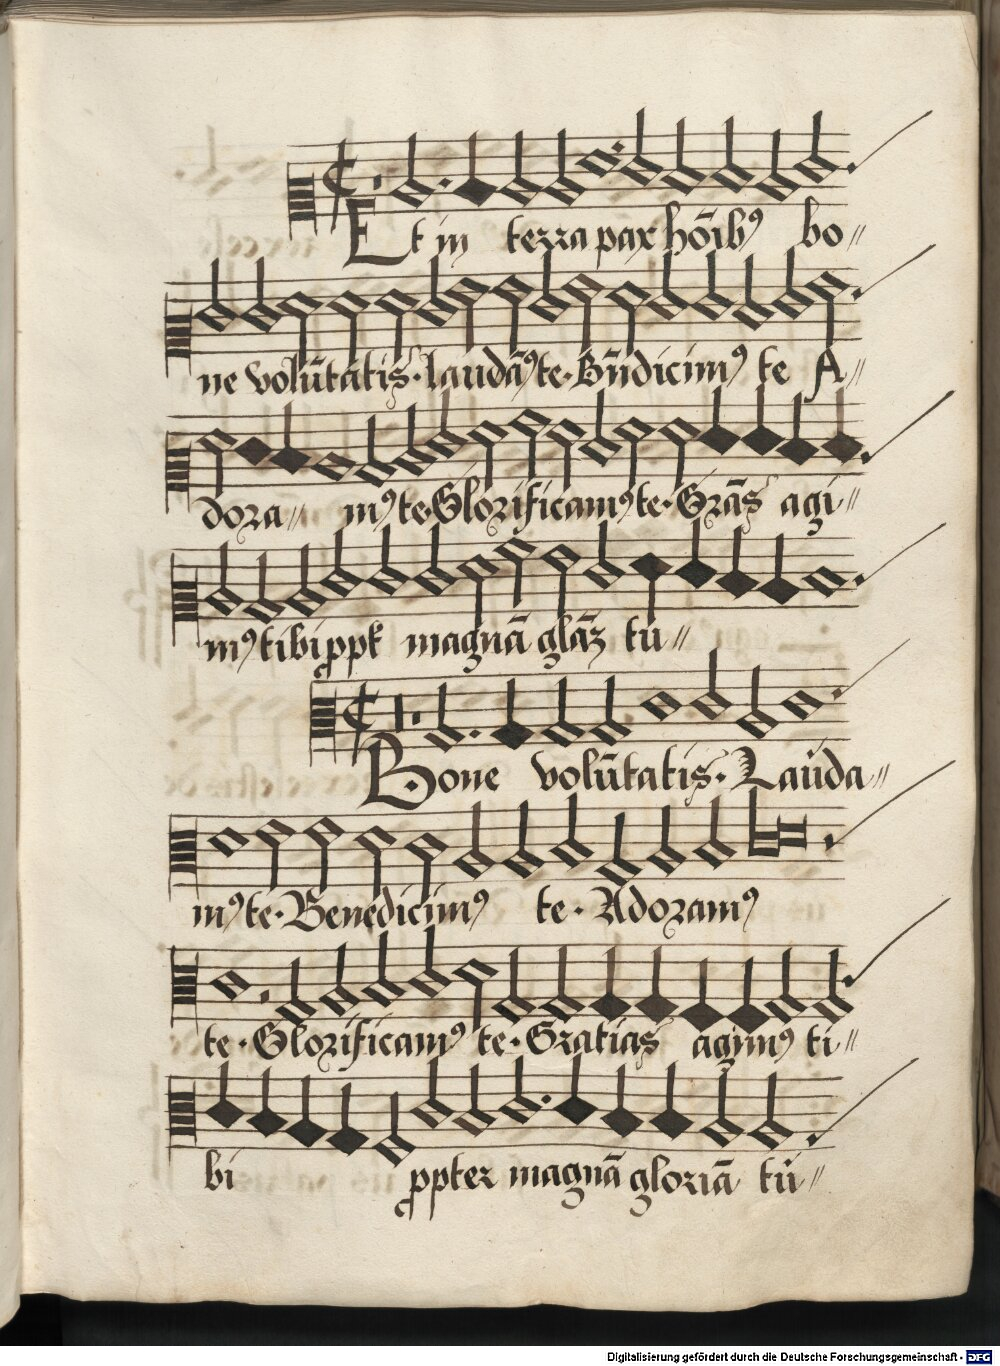 Et in terra pax hōibꝰ bo//
ne volūtatis · laudāꝰ te · Bn̄dicimꝰ te A//
dora// mꝰ te · Glorificamꝰ te · Grās agi//
mꝰ tibi ꝓpt magnā glāꝫ tu//
Bone volūtatis · Lauda//
mꝰ te · Benedicimꝰ te · Adoramꝰ
te · Glorificamꝰ te · Gratias agimꝰ ti//
bi ꝓpter magnā gloriā tu//
Digitalisierung gefördert durch die Deutsche Forschungsgemeinschaft - DFG